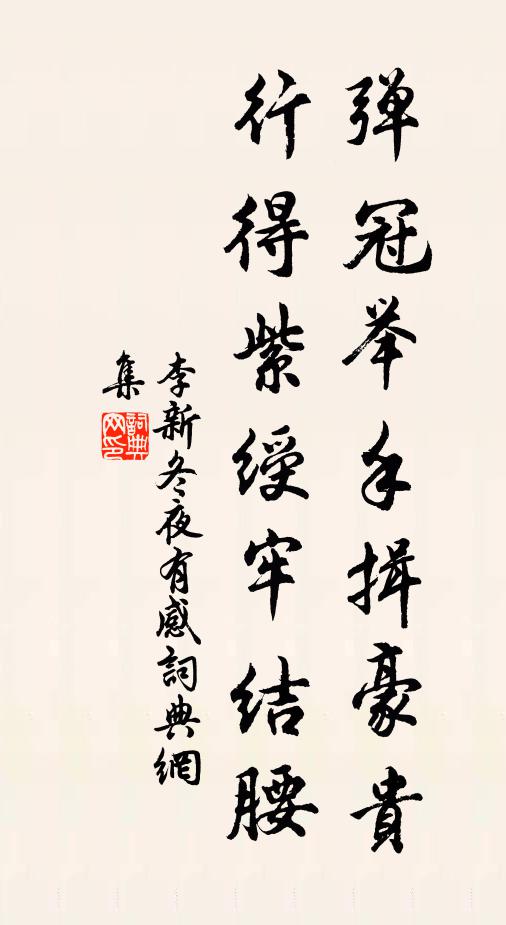 弹冠举手揖豪貴
行得紫綬牢结腰
李新冬夜有感詞典網
集
詞典
网印